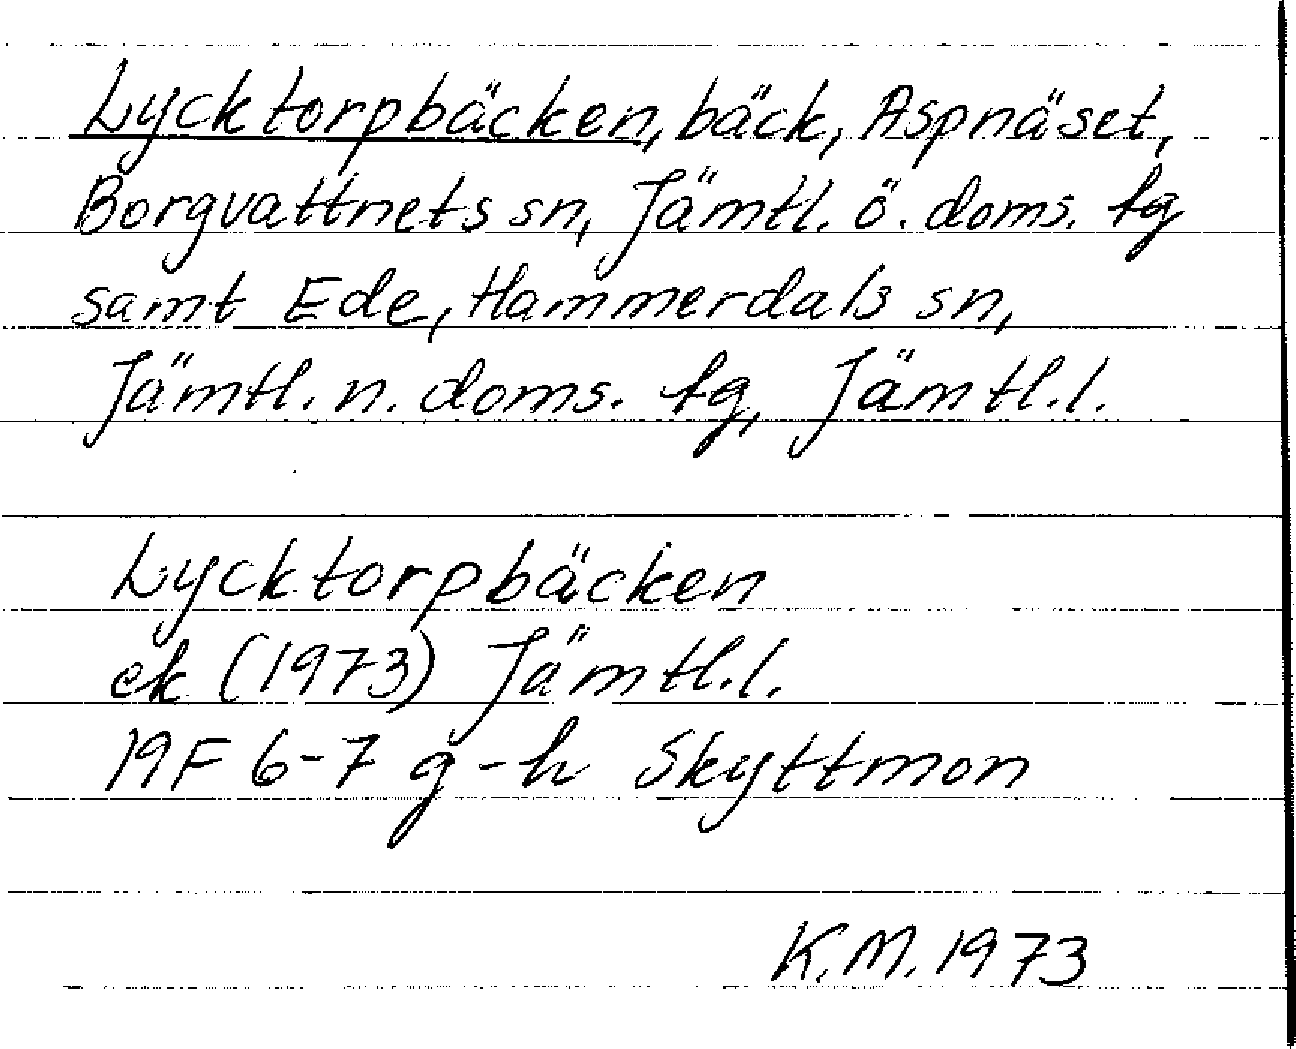 Lycktorpbäcken, bäck, Aspnäset,
Borgvattnets sn, Jämtl. ö. doms. tg
samt Ede, Hammerdals sn,
Jämtl. n. doms. tg, Jämtl. l.
Lycktorpbäcken
ek (1973) Jämtl. l.
19F 6-7 g-h Skyttmon
K.M. 1973